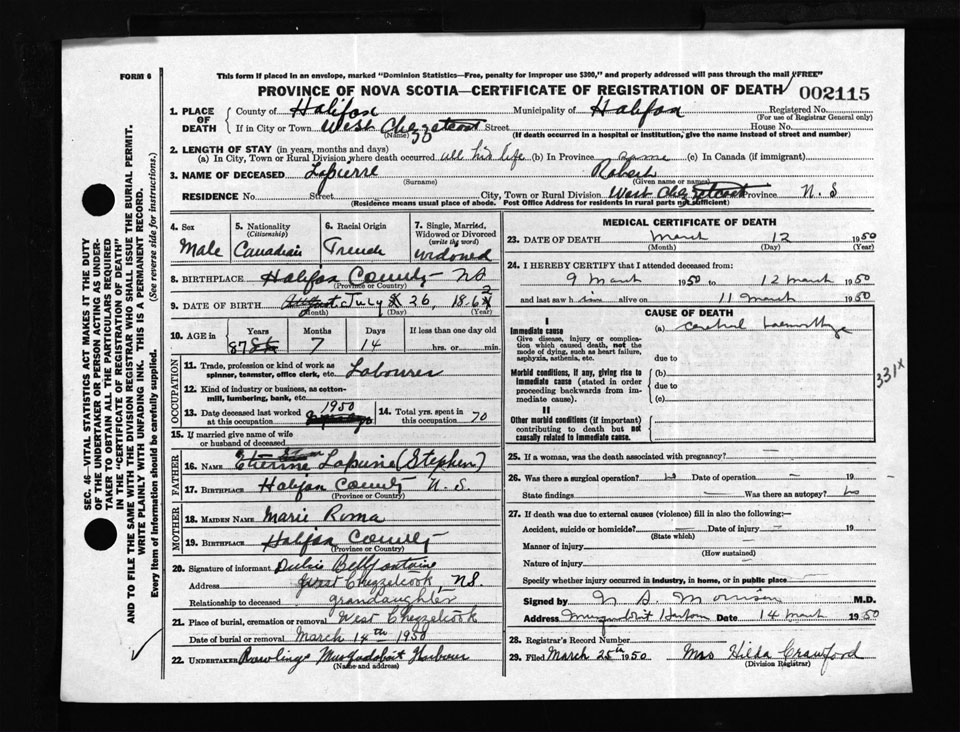 FORM 6
This form if placed in an envelope, marked "Dominion Statistics—Free, penalty for improper use $300," and properly addressed will pass through the mail "FREE"
PROVINCE OF NOVA SCOTIA—CERTIFICATE OF REGISTRATION OF DEATH 002115
1. PLACE OF DEATH County of Halifax Municipality of Halifax Registered No.
(For use of Registrar General only)
If in City or Town West Chezzetcook Street House No.
(Name) (If death occurred in a hospital or institution, give the name instead of street and number)
2. LENGTH OF STAY (in years, months and days)
(a) In City, Town or Rural Division where death occurred all his life (b) In Province same (c) In Canada (if immigrant)
3. NAME OF DECEASED Lapierre Robert
(Surname) (Given name or names)
RESIDENCE No. Street City, Town or Rural Division West Chezzetcook Province N. S
(Residence means usual place of abode. Post Office Address for residents in rural parts not sufficient)
4. Sex 5. Nationality (Citizenship) 6. Racial Origin 7. Single, Married, Widowed or Divorced (write the word)
Male Canadian French widowed
8. BIRTHPLACE Halifax County NS
(Province or Country)
9. DATE OF BIRTH July 26, 1862
(Month) (Day) (Year)
10. AGE in Years Months Days If less than one day old
87 7 14 hrs. or min.
OCCUPATION
11. Trade, profession or kind of work as spinner, teamster, office clerk, etc. Labourer
12. Kind of industry or business, as cotton-mill, lumbering, bank, etc.
13. Date deceased last worked at this occupation 1950 14. Total yrs. spent in this occupation 70
15. If married give name of wife or husband of deceased
FATHER
16. NAME Etienne Lapierre (Stephen)
17. BIRTHPLACE Halifax County N. S.
(Province or Country)
MOTHER
18. MAIDEN NAME Marie Roma
19. BIRTHPLACE Halifax County
(Province or Country)
20. Signature of informant Bellfontaine
Address West Chezzelcook, NS.
Relationship to deceased grandaughter
21. Place of burial, cremation or removal West Chezzelcook
Date of burial or removal March 14th 1950
22. UNDERTAKER Rawlings Musquodoboit Harbour
(Name and address)
MEDICAL CERTIFICATE OF DEATH
23. DATE OF DEATH March 12 1950
(Month) (Day) (Year)
24. I HEREBY CERTIFY that I attended deceased from:
9 March 1950 to 12 March 1950
and last saw him alive on 11 March 1950
CAUSE OF DEATH
I
Immediate cause (a) cerebral haemorrhage
Give disease, injury or complication which caused death, not the mode of dying, such as heart failure, asphyxia, asthenia, etc. due to
Morbid conditions, if any, giving rise to immediate cause (stated in order proceeding backwards from immediate cause). (b)
due to
(c)
331x
II
Other morbid conditions (if important) contributing to death but not causally related to immediate cause.
25. If a woman, was the death associated with pregnancy?
26. Was there a surgical operation? no Date of operation 19
State findings Was there an autopsy? no
27. If death was due to external causes (violence) fill in also the following:—
Accident, suicide or homicide? Date of injury 19
(State which)
Manner of injury
(How sustained)
Nature of injury
Specify whether injury occurred in industry, in home, or in public place
Signed by Morrison M.D.
Address Musquodoboit Harbour Date 14 March 1950
28. Registrar's Record Number
29. Filed March 25th 1950 Mrs Hilda Crawford
(Division Registrar)
SEC. 46—VITAL STATISTICS ACT MAKES IT THE DUTY
OF THE UNDERTAKER OR PERSON ACTING AS UNDERTAKER
TO OBTAIN ALL THE PARTICULARS REQUIRED
IN THE "CERTIFICATE OF REGISTRATION OF DEATH"
AND TO FILE THE SAME WITH THE DIVISION REGISTRAR WHO SHALL ISSUE THE BURIAL PERMIT.
WRITE PLAINLY WITH UNFADING INK. THIS IS A PERMANENT RECORD.
Every item of Information should be carefully supplied. (See reverse side for instructions.)